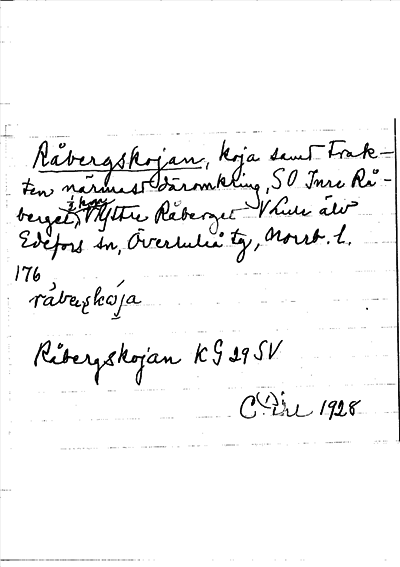 Råbergskojan, koja samt trak-
ten närmast däromkring, SO Inre Rå-
berget, V Yttre Råberget V Lule älv
Edefors sn, Överluleå tg, Norrb. l.
176
råbærskòja
Råbergskojan KG 29 SV
1928